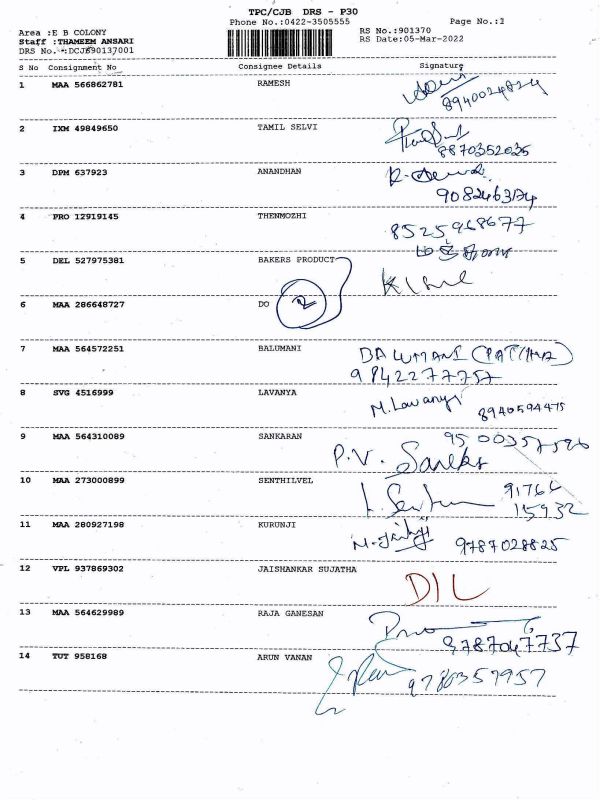 TPC/CJB DRS - P30
Phone No.:0422-3505555
Page No.:1
Area :E B COLONY
RS No.:901370
Staff :THAMEEM ANSARI
RS Date:05-Mar-2022
DRS No. :DCJB90137001
S No Consignment No Consignee Details Signature
1 MAA 566862781 RAMESH
8940024824
2 IXM 49849650 TAMIL SELVI
8870352035
3 DPM 637923 ANANDHAN
4 PRO 12919145 THENMOZHI
8525968677
5 DEL 527975381 BAKERS PRODUCT
6 MAA 286648727 DO 2
7 MAA 564572251 BALUMANI
BALUMANI
9842277757
8 SVG 4516999 LAVANYA M. Lavanya 8940594475
9 MAA 564310089 SANKARAN P.V.
10 MAA 273000899 SENTHILVEL
91766
15932
11 MAA 280927198 KURUNJI
9787028825
12 VPL 937869302 JAISHANKAR SUJATHA
D/L
13 MAA 564629989 RAJA GANESAN
9787047737
14 TUT 958168 ARUN VANAN
9780357957